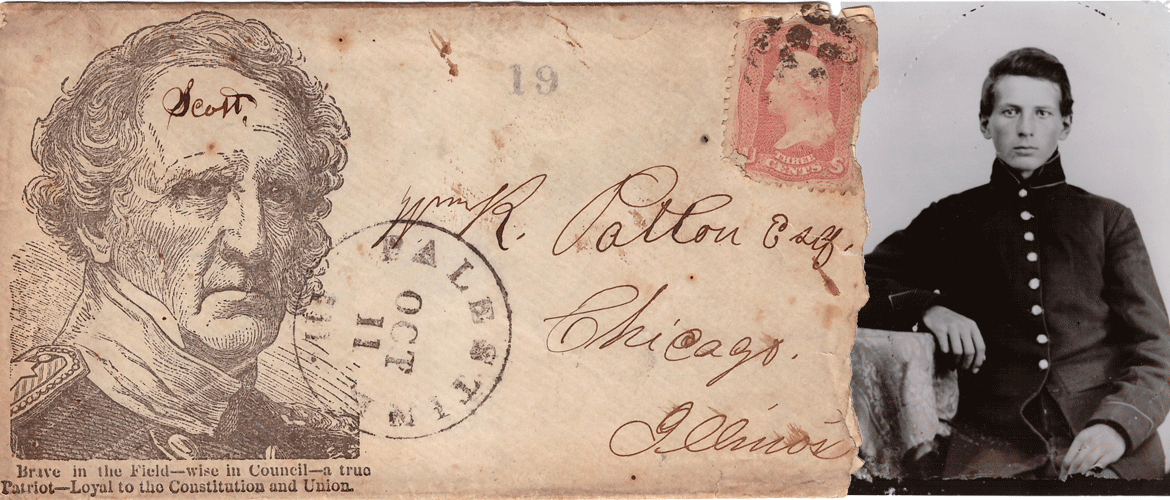 Scott,
19
THREE
CENTS
Wm R. Patton Esq.
PALESTINE
OCT
11
Chicago.
Illinois
Brave in the Field—wise in Council—a true
Patriot—Loyal to the Constitution and Union.